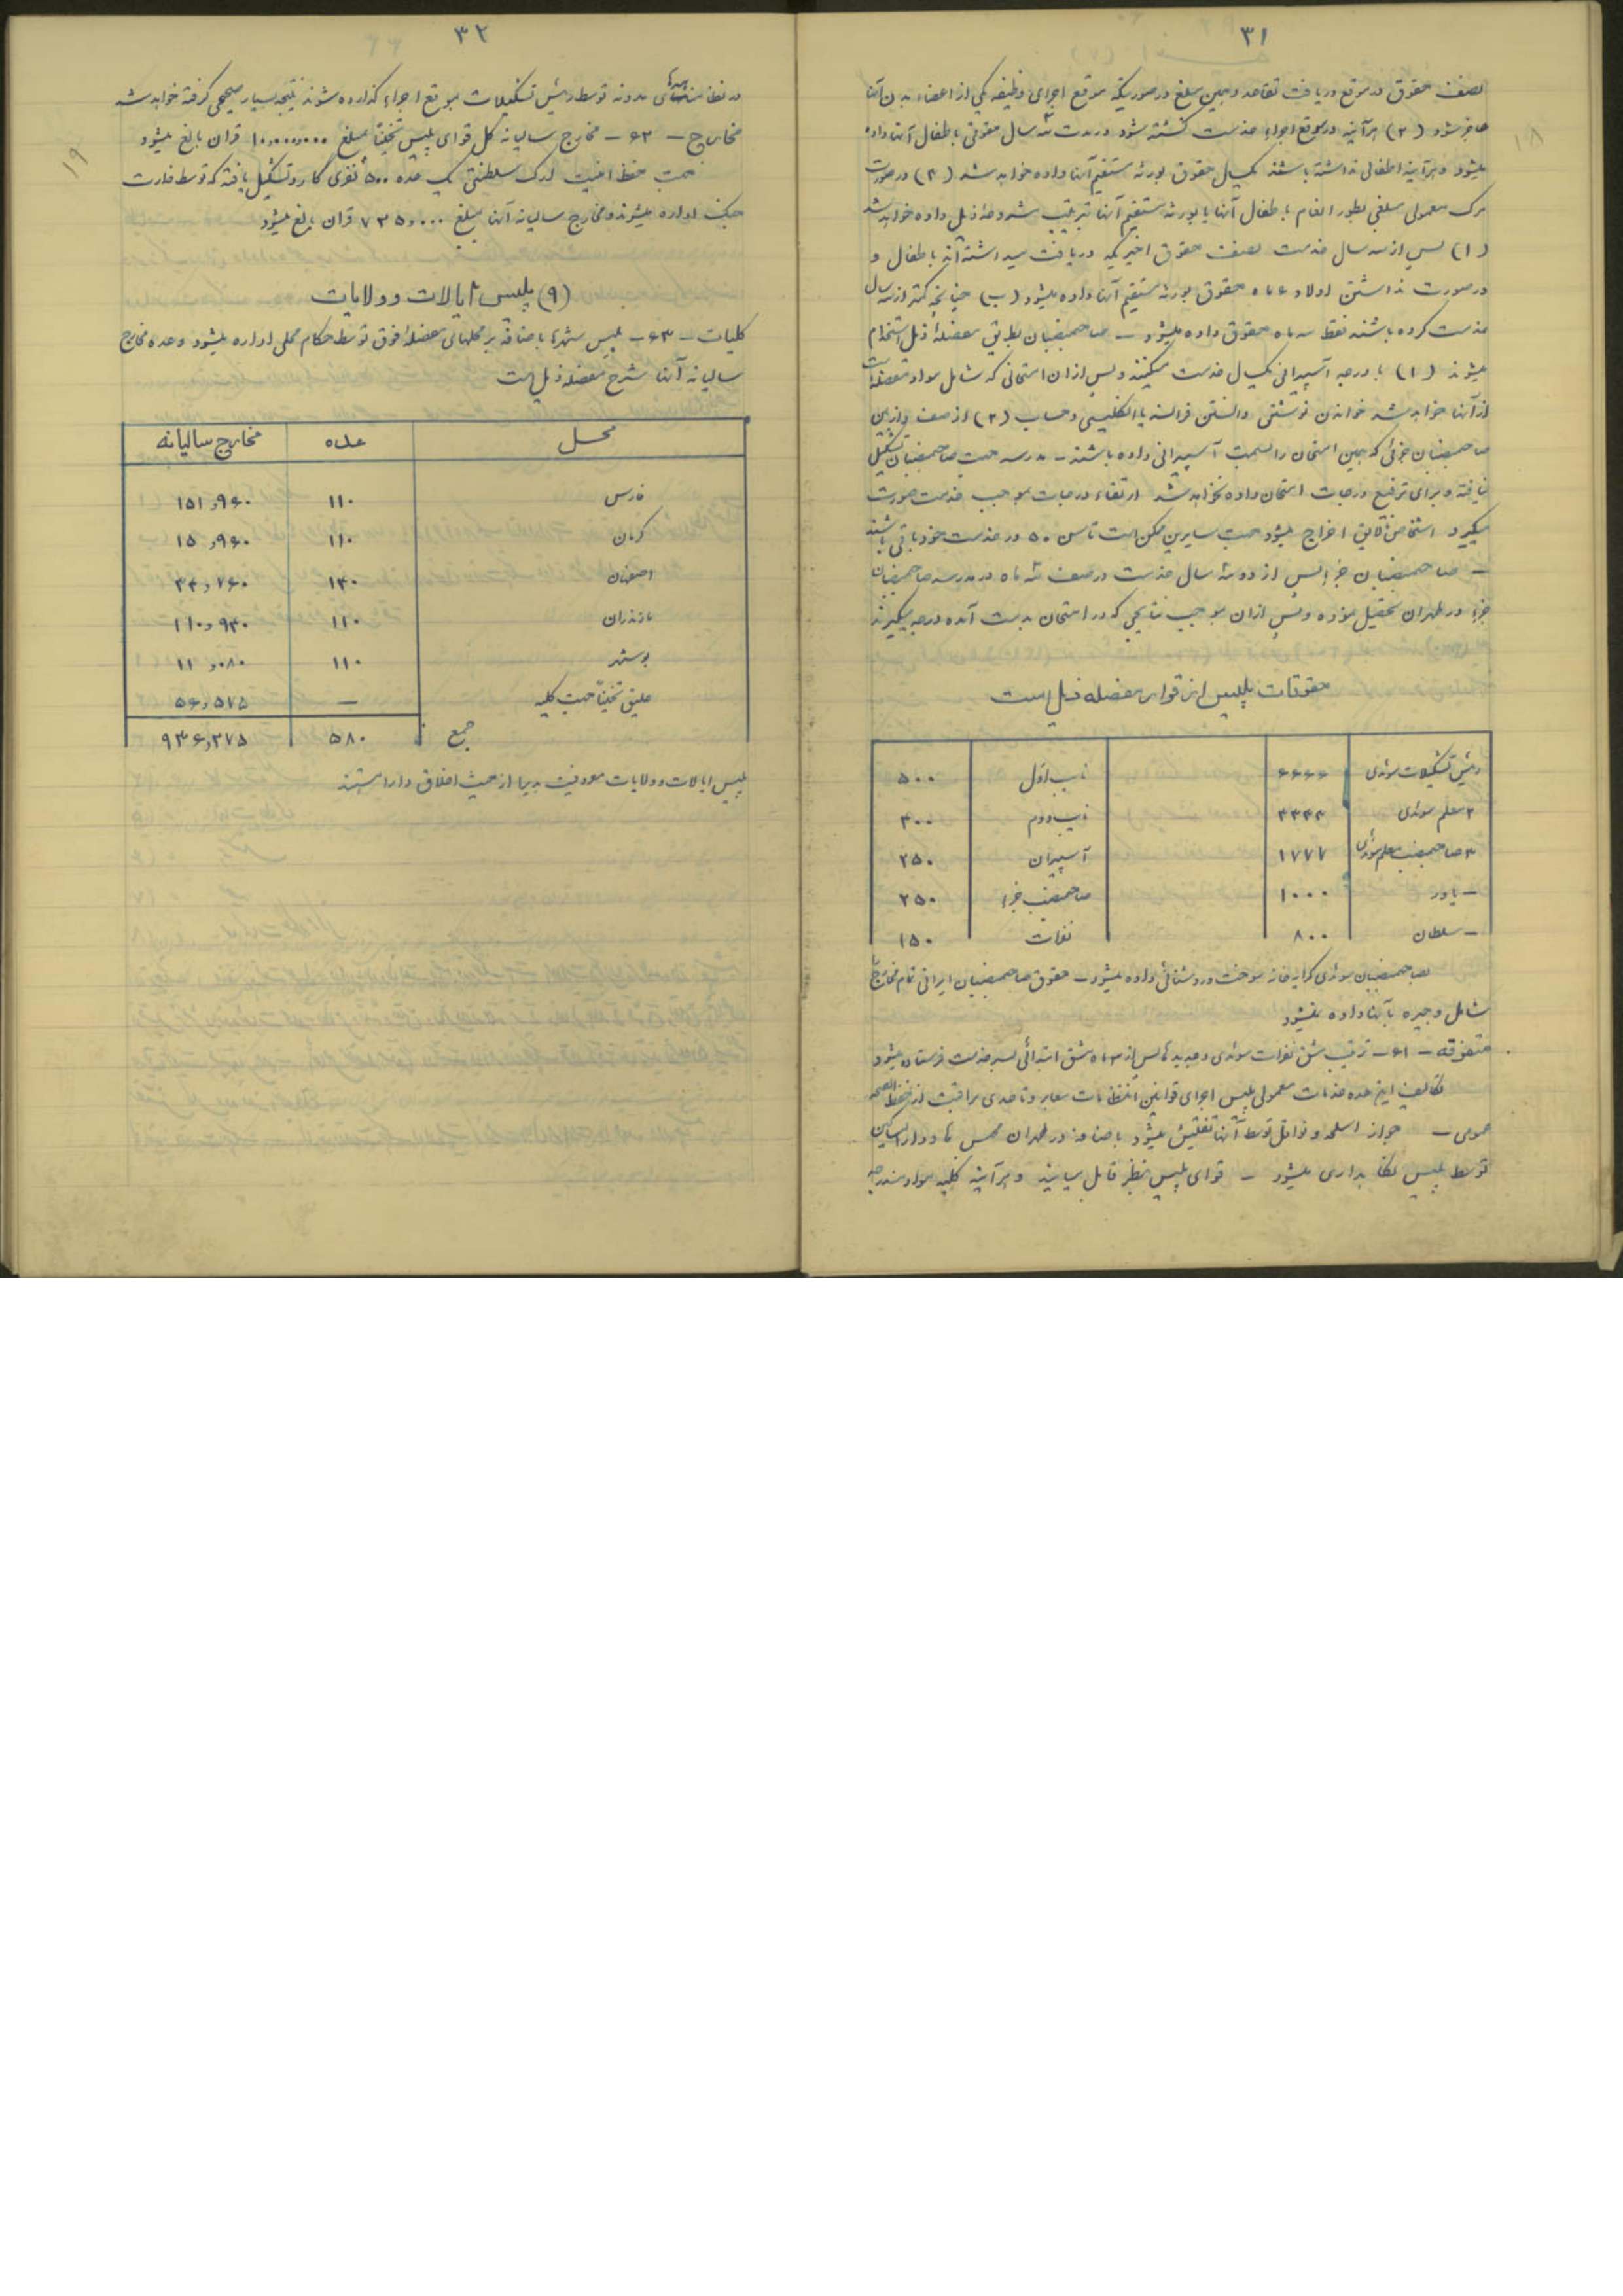 ۳۱
نصف حقوق در موقع دریافت تقاعد و همین مبلغ در صورتیکه موقع اجرای وظیفه یکی از اعضاء بدن آنها
عاجز شود (۲) هرآینه در موقع اجراء خدمت کشته شود در مدت سه سال حقوقی باطفال آنها داده
میشود و هرآینه اطفالی نداشته باشند یکسال حقوق بورثه مستقیم آنها داده خواهد شد (۳) در صورت
مرگ معمولی مبلغی بطور انعام باطفال آنها یا بورثه مستقیم آنها بترتیب مشروحه ذیل داده خواهد شد
(۱) پس از سه سال خدمت نصف حقوق اخیریکه دریافت میداشته‌اند باطفال و
در صورت نداشتن اولاد ۶ ماه حقوق بورثه مستقیم آنها داده میشود (ب) چنانچه کمتر از سه سال
خدمت کرده باشند فقط سه ماه حقوق داده میشود – صاحمنصبان بطریق مفصلهٔ ذیل استخدام
میشوند (۱) با درجه آسپیرانی یکسال خدمت میکنند و پس از آن امتحانی که شامل مواد مفصله است
از آنها خواهد شد خواندن نوشتن دانستن فرانسه یا انگلیسی و حساب (۲) از صف و از بین
صاحمنصبان جزئی که همین امتحان را بسمت آسپیرانی داده باشند – مدرسه جهت صاحمنصبان تشکیل
نیافته و برای ترفیع درجات امتحان داده نخواهد شد ارتقاء درجات بموجب خدمت صورت
میگیرد اشخاص نالایق اخراج میشود جهت سایرین ممکن است تا سن ۵۰ در خدمت خود باقی باشند
– صاحمنصبان جزء پس از دو سه سال خدمت در صف شه ماه در مدرسه صاحمنصبان
جزء در طهران تحصیل نموده و پس از آن بموجب نتایجی که در امتحان بدست آمده درجه میگیرند
حقوقات پلیس از قرار مفصله ذیل است
رئیس تشکیلات سوئدی ۶۶۶۶ نایب اول ۵۰۰
۲ معلم سوئدی ۳۳۳۳ نایب دوم ۴۰۰
۳ صاحمنصب معلم سوئدی ۱۷۷۷ آسپیران ۲۵۰
– یاور ۱۰۰۰ صاحمنصب جزء ۲۵۰
– سلطان ۸۰۰ نفرات ۱۵۰
بصاحمنصبان سوئدی کرایه خانه سوخت و روشنائی داده میشود – حقوق صاحمنصبان ایرانی تمام مخارج
شامل و جیره بآنها داده نمیشود
متفرقه – ۶۱ – ترتیب مشق نفرات سوئدی و جدیدها پس از ۳ ماه مشق ابتدائی بسر خدمت فرستاده میشود
تکالیف این عده خدمات معمولی پلیس اجرای قوانین انتظامات معابر و تا حدی مراقبت از حفظ الصحه
عمومی – جواز اسلحه و نواقل توسط آنها تفتیش میشود باضافه در طهران محبس ها و دارالمساکین
توسط پلیس نگاهداری میشود – قوای پلیس بنظر قابل میایند و هرآینه کلیه مواد مندرجه
۱۸
۳۲
در نظامنامه‌های مدونه توسط رئیس تشکیلات بموقع اجراء گذارده شوند نتیجه بسیار صحیحی گرفته خواهد شد
مخارج – ۶۲ – مخارج سالیانه کل قوای پلیس تخمیناً بمبلغ ۱۰،۰۰۰،۰۰۰ قران بالغ میشود
جهت حفظ امنیت ارک سلطنتی یک عده ۵۰۰ نفری گارد تشکیل یافته که توسط وزارت
جنگ اداره میشوند و مخارج سالیانه آنها بمبلغ ۷۳۵،۰۰۰ قران بالغ میشود
(۹) پلیس ایالات و ولایات
کلیات – ۶۳ – پلیس شهرها باضافه بر محلهای مفصلهٔ فوق توسط حکام محلی اداره میشود و عده مخارج
سالیانه آنها بشرح مفصله ذیل است
محل عده مخارج سالیانه
فارس ۱۱۰ ۱۵۱،۹۶۰
کرمان ۱۱۰ ۱۵،۹۶۰
اصفهان ۱۴۰ ۳۴،۷۶۰
مازندران ۱۱۰ ۱۱۰،۹۴۰
بوشهر ۱۱۰ ۱۱،۰۸۰
علیق تخمیناً جهت کلیه – ۵۶،۵۷۵
جمع ۵۸۰ ۹۳۶،۲۷۵
پلیس ایالات و ولایات معروفیت بدیرا از حیث اخلاق دارا هستند
۱۹